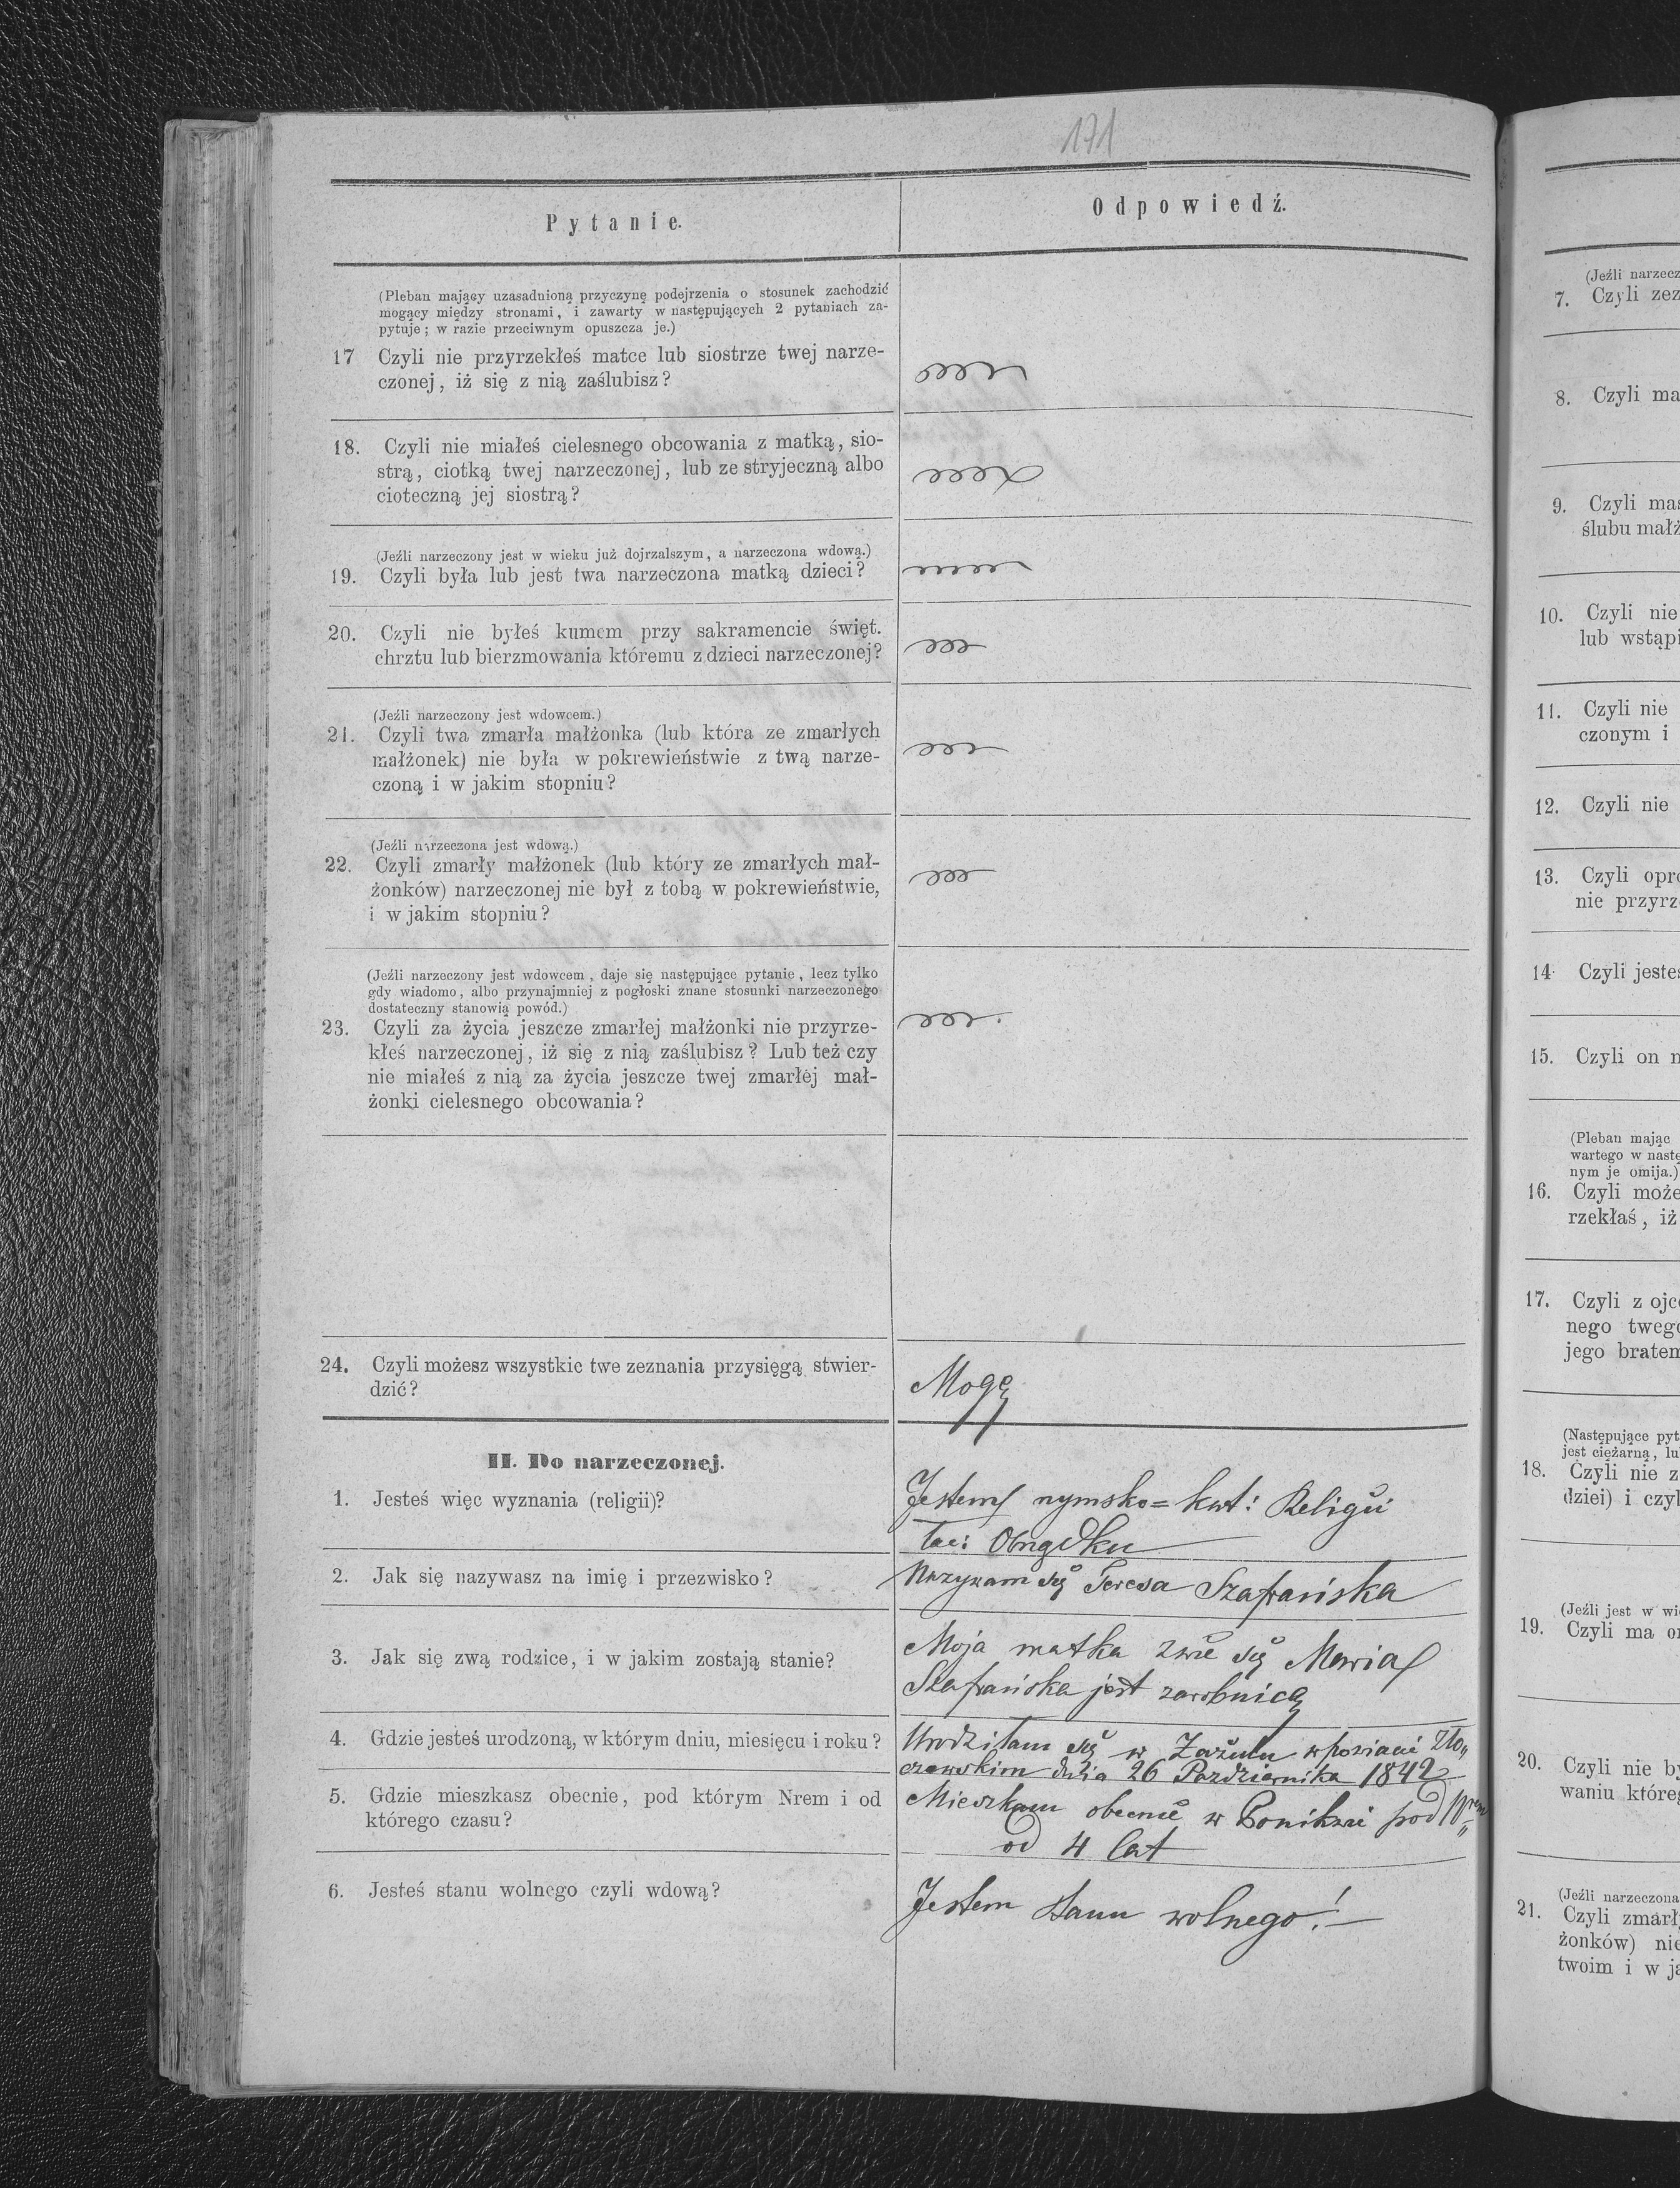 171
Pytanie.
Odpowiedź.
(Pleban mający uzasadnioną przyczynę podejrzenia o stosunek zachodzić
mogący między stronami, i zawarty w następujących 2 pytaniach za-
pytuje; w razie przeciwnym opuszcza je.)
17 Czyli nie przyrzekłeś matce lub siostrze twej narze-
czonej, iż się z nią zaślubisz?
18. Czyli nie miałeś cielesnego obcowania z matką, sio-
strą, ciotką twej narzeczonej, lub ze stryjeczną albo
cioteczną jej siostrą?
(Jeźli narzeczony jest w wieku już dojrzalszym, a narzeczona wdową.)
19. Czyli była lub jest twa narzeczona matką dzieci?
20. Czyli nie byłeś kumem przy sakramencie święt.
chrztu lub bierzmowania któremu z dzieci narzeczonej?
(Jeźli narzeczony jest wdowcem.)
21. Czyli twa zmarła małżonka (lub która ze zmarłych
małżonek) nie była w pokrewieństwie z twą narze-
czoną i w jakim stopniu?
(Jeźli narzeczona jest wdową.)
22. Czyli zmarły małżonek (lub który ze zmarłych mał-
żonków) narzeczonej nie był z tobą w pokrewieństwie,
i w jakim stopniu?
(Jeźli narzeczony jest wdowcem, daje się następujące pytanie, lecz tylko
gdy wiadomo, albo przynajmniej z pogłoski znane stosunki narzeczonego
dostateczny stanowią powód.)
23. Czyli za życia jeszcze zmarłej małżonki nie przyrze-
kłeś narzeczonej, iż się z nią zaślubisz? Lub też czy
nie miałeś z nią za życia jeszcze twej zmarłej mał-
żonki cielesnego obcowania?
24. Czyli możesz wszystkie twe zeznania przysięgą stwier-
dzić?
Mogę
II. Do narzeczonej.
1. Jesteś więc wyznania (religii)?
Jestem rymsko=kat: Religii
łac: Obrządku
2. Jak się nazywasz na imię i przezwisko?
Nazywam się Teresa Szafrańska
3. Jak się zwą rodzice, i w jakim zostają stanie?
Moja matka zwie się Maria
Szafrańska jest zarobnicą
4. Gdzie jesteś urodzoną, w którym dniu, miesięcu i roku?
Urodziłam się w w powiacie Zło„
czowskim dnia 26 Pazdziernika 1842
5. Gdzie mieszkasz obecnie, pod którym Nrem i od
którego czasu?
Mieszkam obecnie w Ponikwie pod Nrem
od 4 lat
6. Jesteś stanu wolnego czyli wdową?
Jestem stanu wolnego!
(Jeźli narzecz
7. Czyli zez
8. Czyli ma
9. Czyli mas
ślubu małż
10. Czyli nie
lub wstąpi
11. Czyli nie
czonym i
12. Czyli nie
13. Czyli opró
nie przyrz
14 Czyli jesteś
15. Czyli on n
(Pleban mając
wartego w nastę
nym je omija.)
16. Czyli może
rzekłaś, iż
17. Czyli z ojce
nego twego
jego bratem
(Następujące pyt
jest ciężarną, lu
18. Czyli nie z
dziei) i czyl
(Jeźli jest w wi
19. Czyli ma on
20. Czyli nie by
waniu które
(Jeźli narzeczona
21. Czyli zmarł
żonków) nie
twoim i w ja